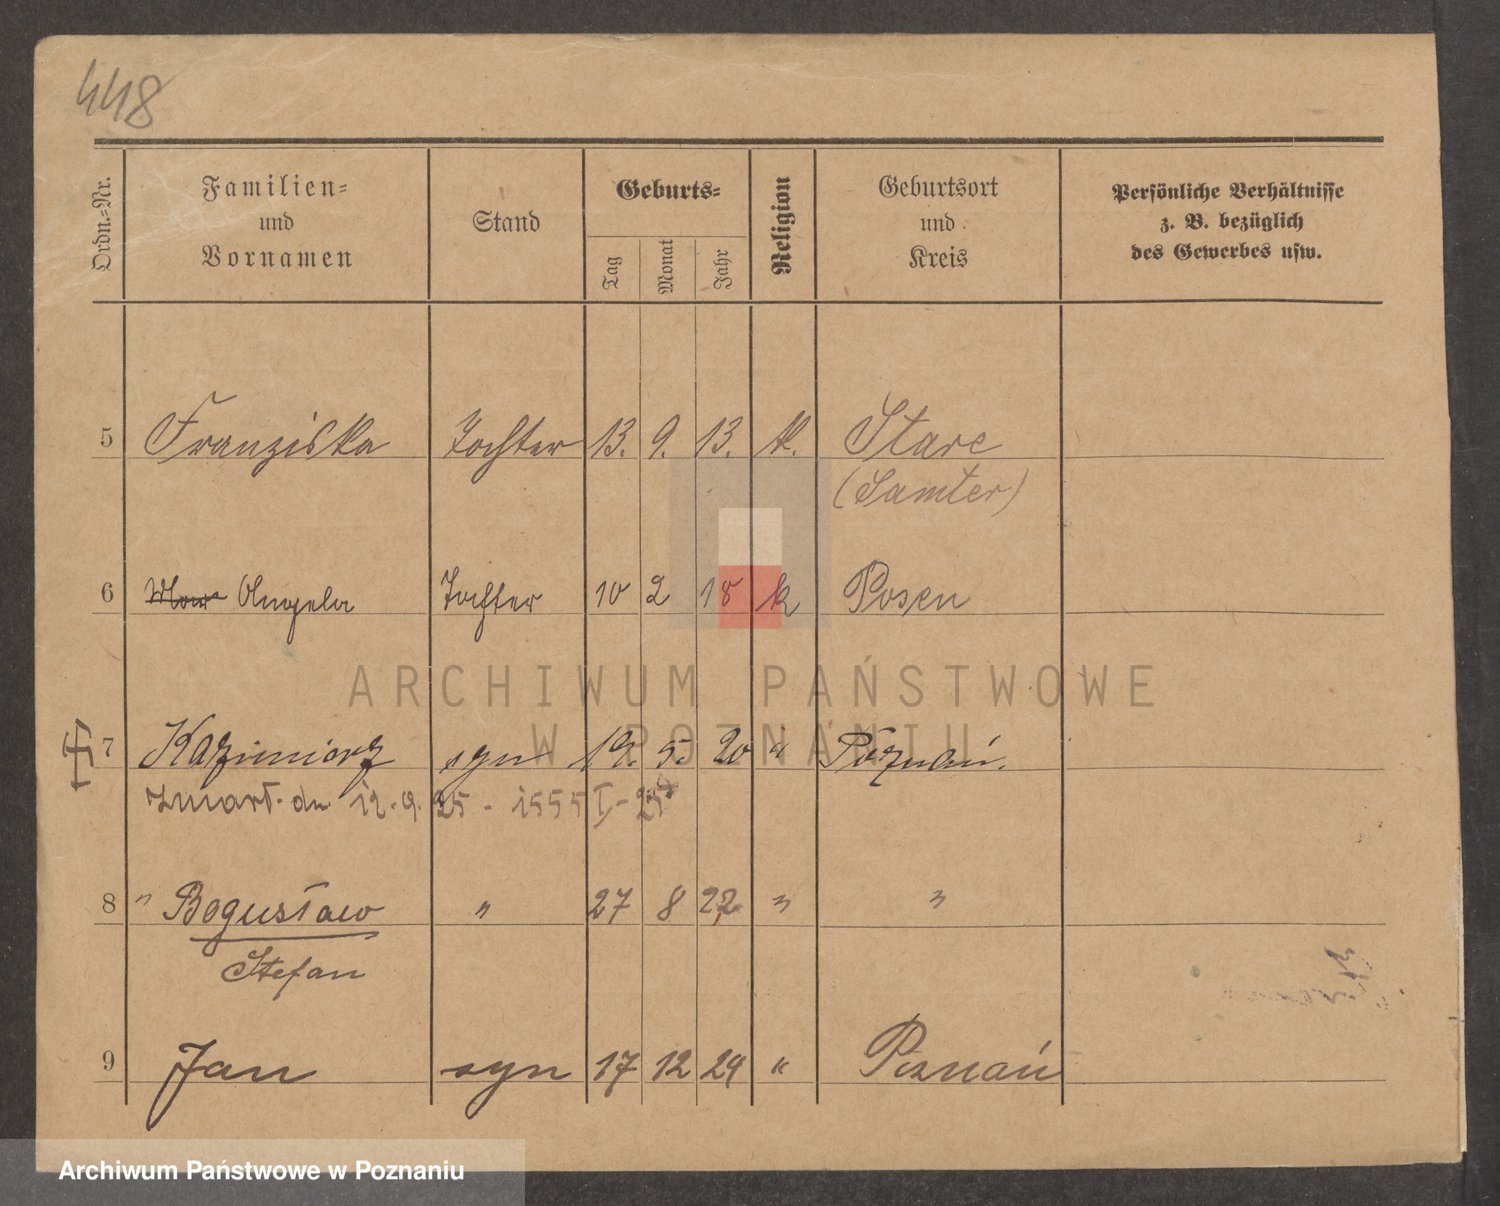 448
Ordn.=Nr.
Familien=
und
Vornamen
Stand
Geburts=
Tag
Monat
Jahr
Religion
Geburtsort
und
Kreis
Persönliche Verhältnisse
z. B. bezüglich
des Gewerbes usw.
5 Franziska Tochter 13. 9. 13. k. Stare
(Samter)
6 Angela Tochter 10 2 18 k Posen
7 Kazimierz syn 19. 5. 20 " Poznań.
zmarł dn. 12.9.25 - 1555 I - 25
8 " Bogusław " 27 8 22 " "
Stefan
9 Jan syn 17 12 24 " Poznań
ARCHIWUM PAŃSTWOWE
W POZNANIU
Archiwum Państwowe w Poznaniu